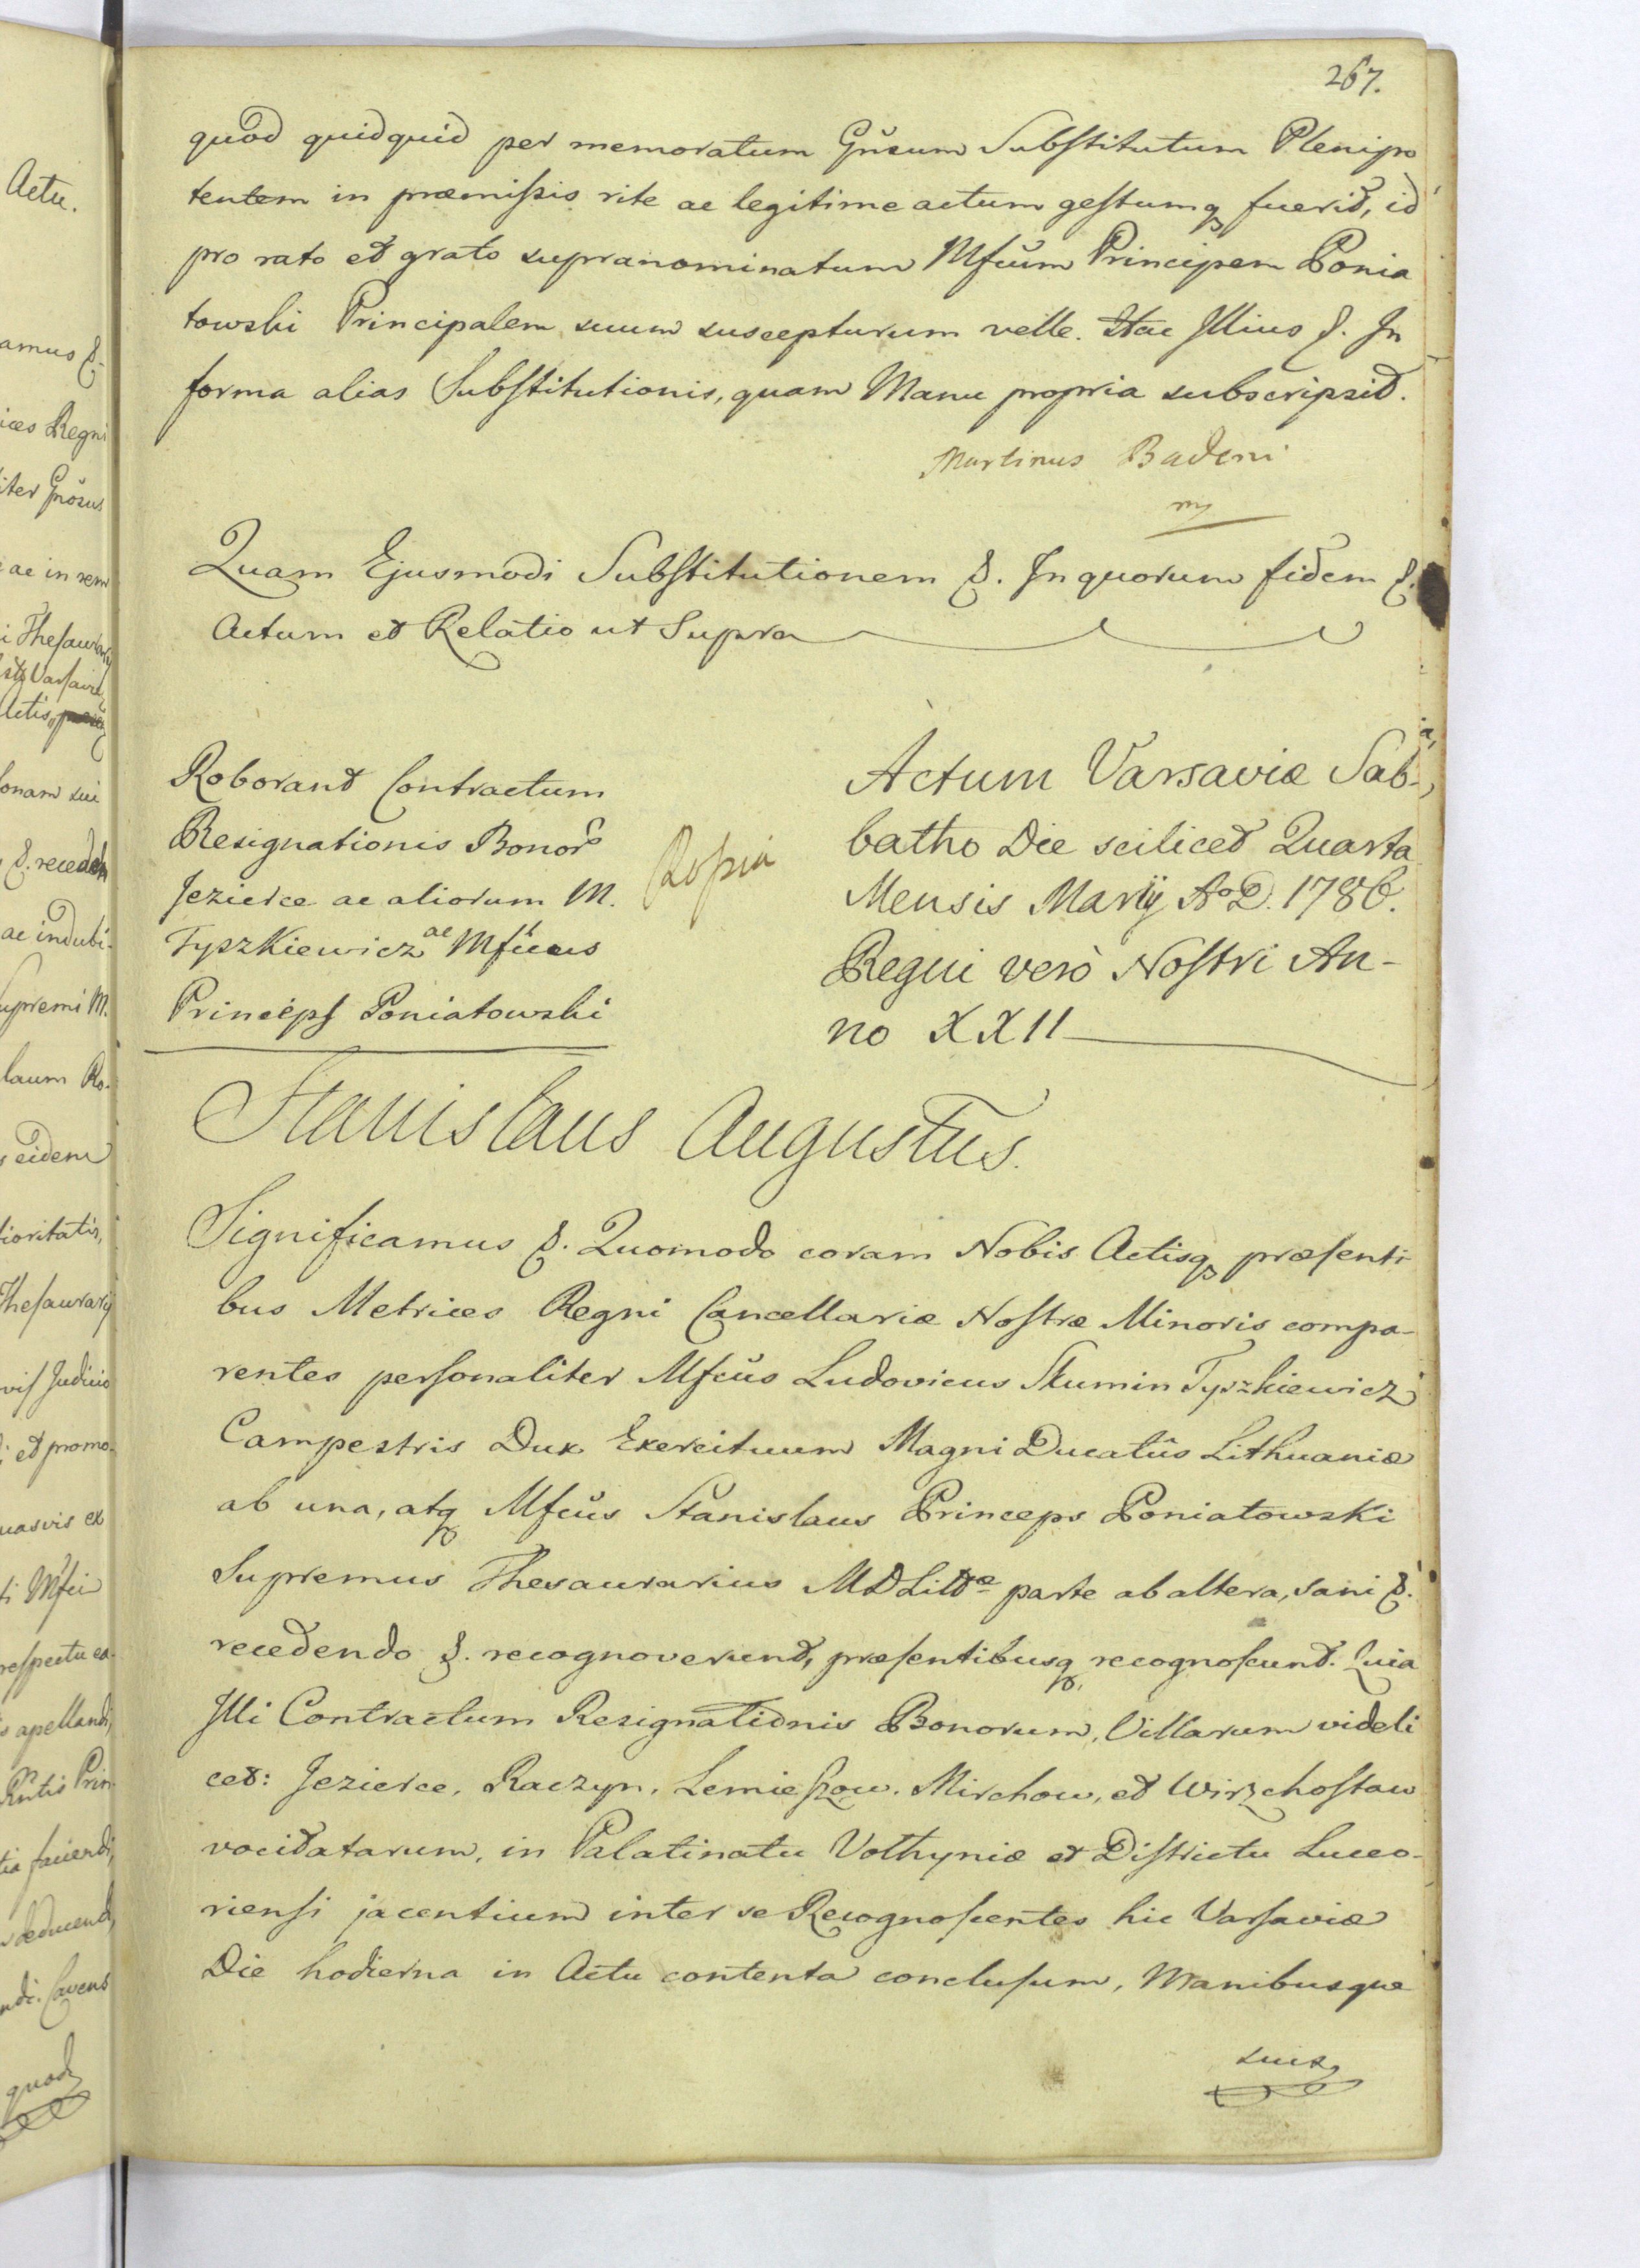 267.
quod quidquid per memoratum Gnrum Substitutum Plenipo
tentem in præmissis rite ac legitime actum gestumq fuerit, id
pro rato et grato supranominatum Mfcum Principem Ponia
towski Principalem suum suscepturum velle. Hac Illius &. In
forma alias Substitutionis, quam Manu propria subscripsit.
Martinus Badeni
mp
Quam Ejusmodi Substitutionem &. In quorum fidem &.
Actum et Relatio ut Supra
Roborant Contractum
Resignationis Bonor
Jezierce ac aliorum M.
Tyszkiewicz ac Mficus
Princeps Poniatowski
Actum Varsaviæ Sab-
batho Die scilicet Quarta
Mensis Martij AoD. 1786.
Regni verò Nostri An-
no XXII
Stanislaus Augustus.
Significamus &. Quomodo coram Nobis Actisq præsenti
bus Metrices Regni Cancellariæ Nostræ Minoris compa-
rentes personaliter Mfcus Ludovicus Skumin Tyszkiewicz
Campestris Dux Exercituum Magni Ducatûs Lithuaniæ
ab una, atq Mfcus Stanislaus Princeps Poniatowski
Supremus Thesaurarius MDLittæ parte ab altera, sani &.
recedendo &. recognoverunt, præsentibusq recognoscunt. Quia
Illi Contractum Resignationis Bonorum, Villarum videli
cet: Jezierce, Raczyn, Lemieszow, Mirchow, et Wirzchostaw
vocitatarum, in Palatinatu Volhyniæ et Districtu Luceo-
riensi jacentium inter se Recognoscentes hic Varsaviæ
Die hodierna in Actu contenta conclusum, Manibusque
suis